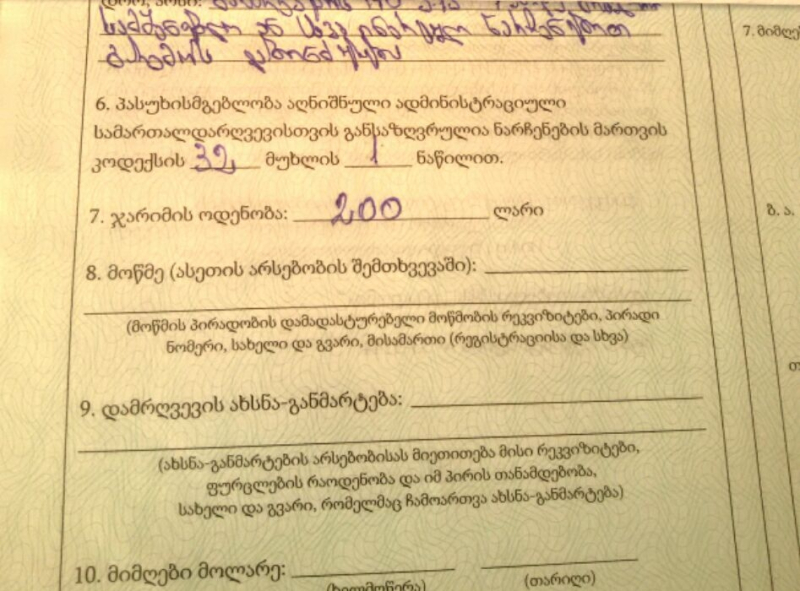 სამშენებლო ან სხვა ინერტული ნარჩენებით
გარემოს დაბინძურება
7. მიმღე
6. პასუხისმგებლობა აღნიშნული ადმინისტრაციული
სამართალდარღვევისთვის განსაზღვრულია ნარჩენების მართვის
კოდექსის 32 მუხლის 1 ნაწილით.
7. ჯარიმის ოდენობა: 200 ლარი
ბ. ა.
8. მოწმე (ასეთის არსებობის შემთხვევაში):
(მოწმის პირადობის დამადასტურებელი მოწმობის რეკვიზიტები, პირადი
ნომერი, სახელი და გვარი, მისამართი (რეგისტრაციისა და სხვა)
9. დამრღვევის ახსნა-განმარტება:
(ახსნა-განმარტების არსებობისას მიეთითება მისი რეკვიზიტები,
ფურცლების რაოდენობა და იმ პირის თანამდებობა,
სახელი და გვარი, რომელმაც ჩამოართვა ახსნა-განმარტება)
10. მიმღები მოლარე:
(ხელმოწერა) (თარიღი)